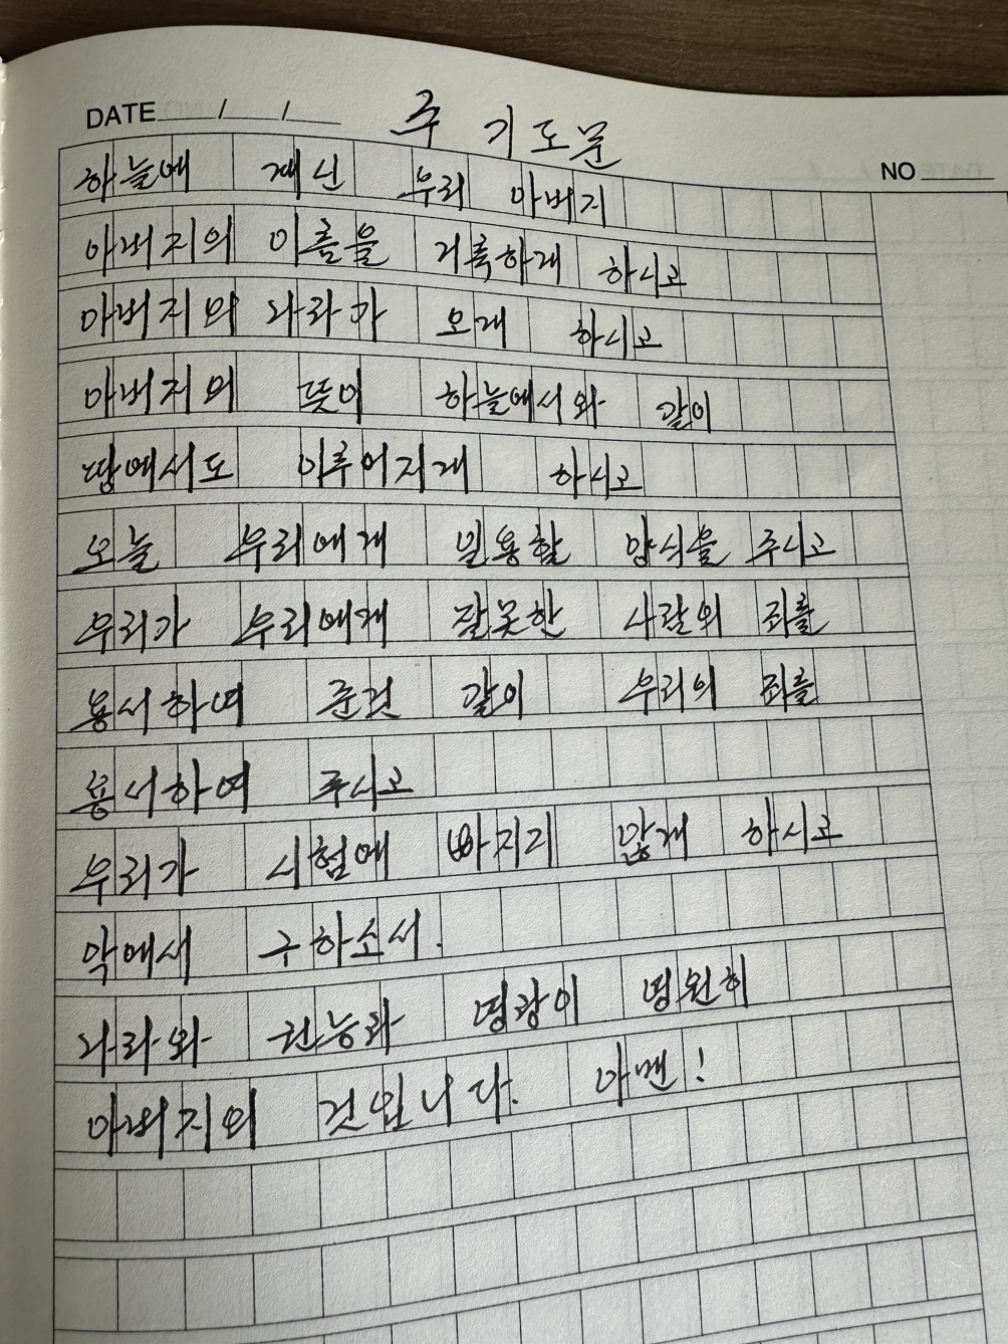 DATE / /
주 기도문
NO
하늘에 계신 우리 아버지
아버지의 이름을 거룩하게 하시고
아버지의 나라가 오게 하시고
아버지의 뜻이 하늘에서와 같이
땅에서도 이루어지게 하시고
오늘 우리에게 일용할 양식을 주시고
우리가 우리에게 잘못한 사람의 죄를
용서하여 준것 같이 우리의 죄를
용서하여 주시고
우리가 시험에 빠지지 않게 하시고
악에서 구하소서.
나라와 권능과 영광이 영원히
아버지의 것입니다. 아멘!